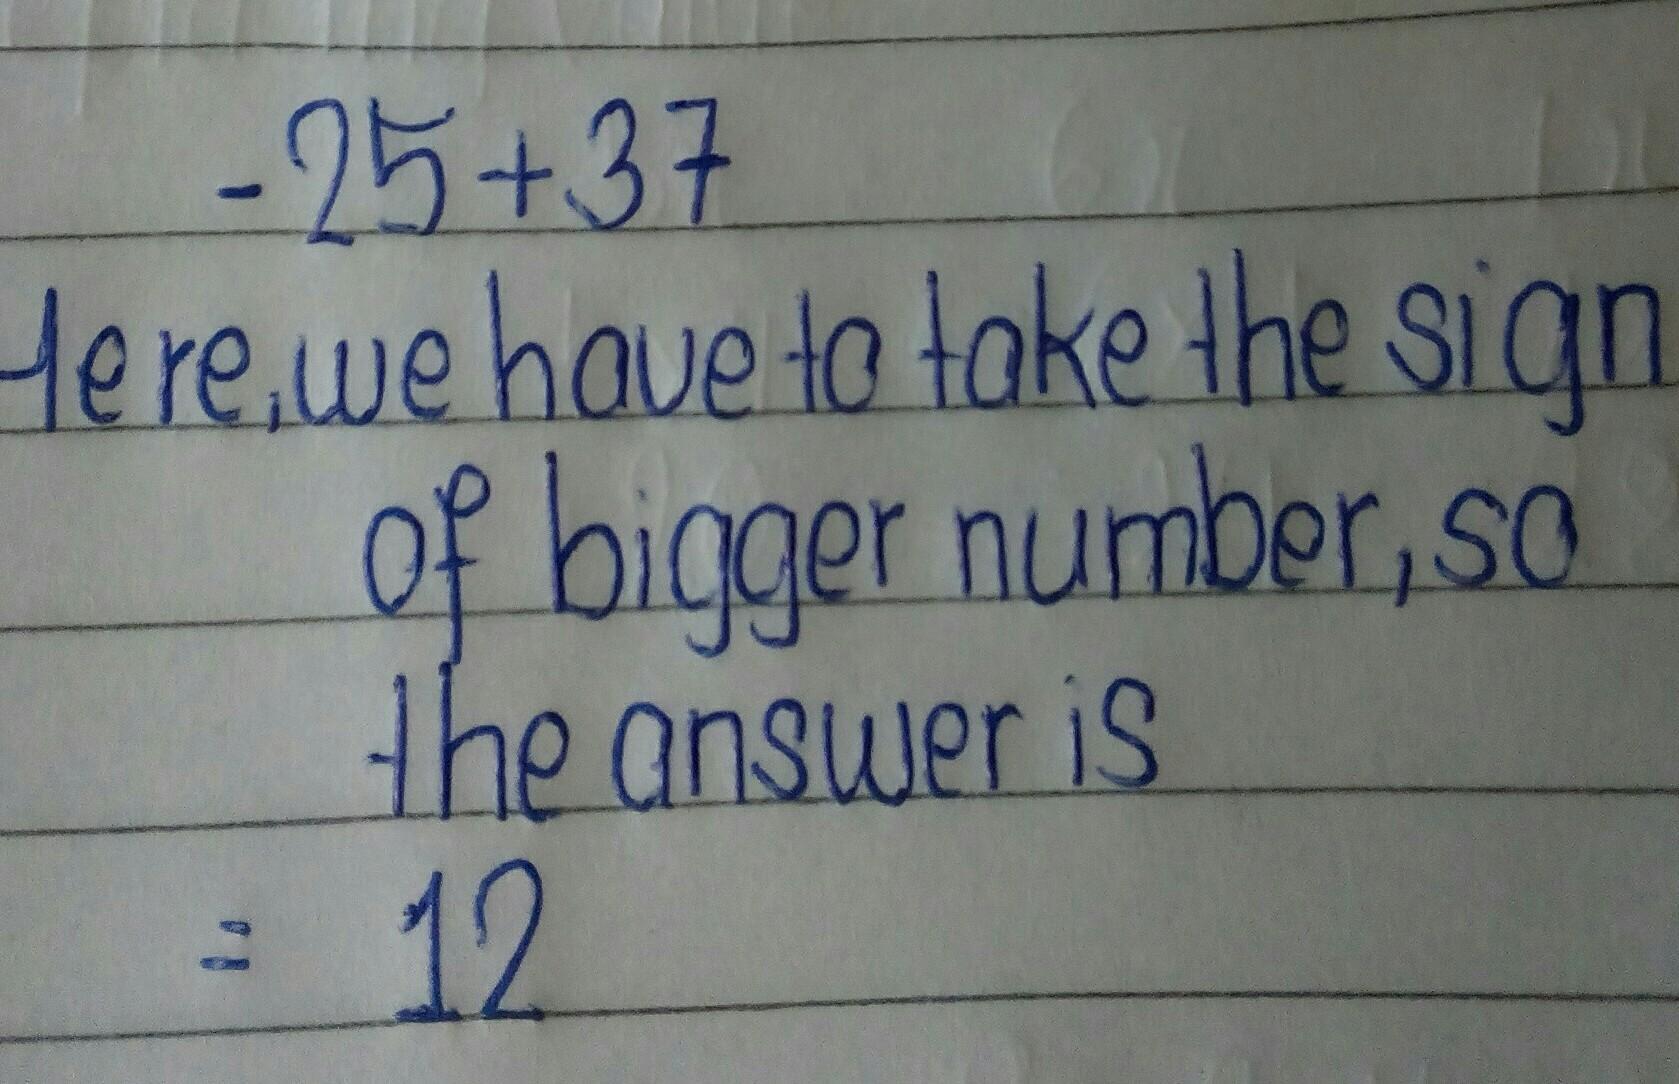 -25+37
Here, we have to take the sign
of bigger number, so
the answer is
= 12